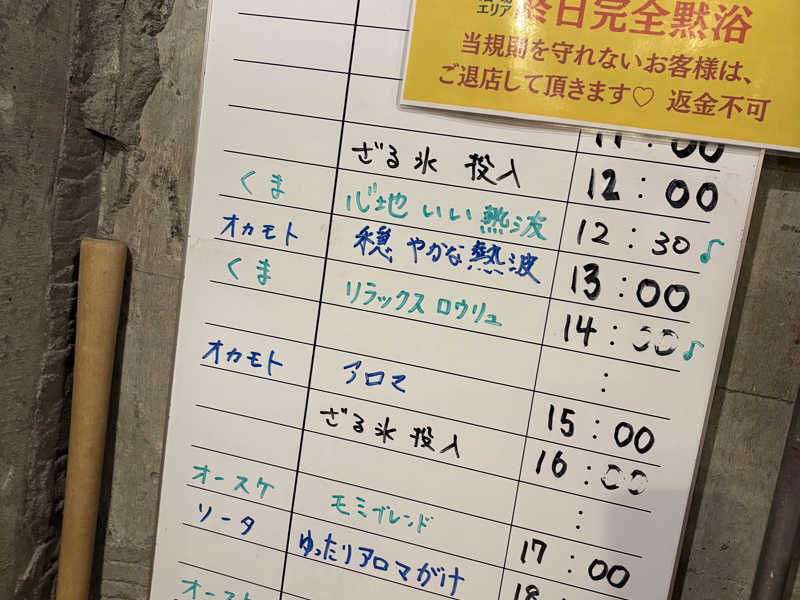 エリア 終日完全黙浴
当規則を守れないお客様は、
ご退店して頂きます♡ 返金不可
11:00
ざる氷 投入 12:00
くま 心地いい熱波 12:30♪
オカモト 穏やかな熱波 13:00
くま リラックスロウリュ 14:00♪
:
オカモト アロマ 15:00
ざる氷投入 16:00
:
オースケ モミブレンド 17:00
ソータ ゆったりアロマがけ 18:
オースケ